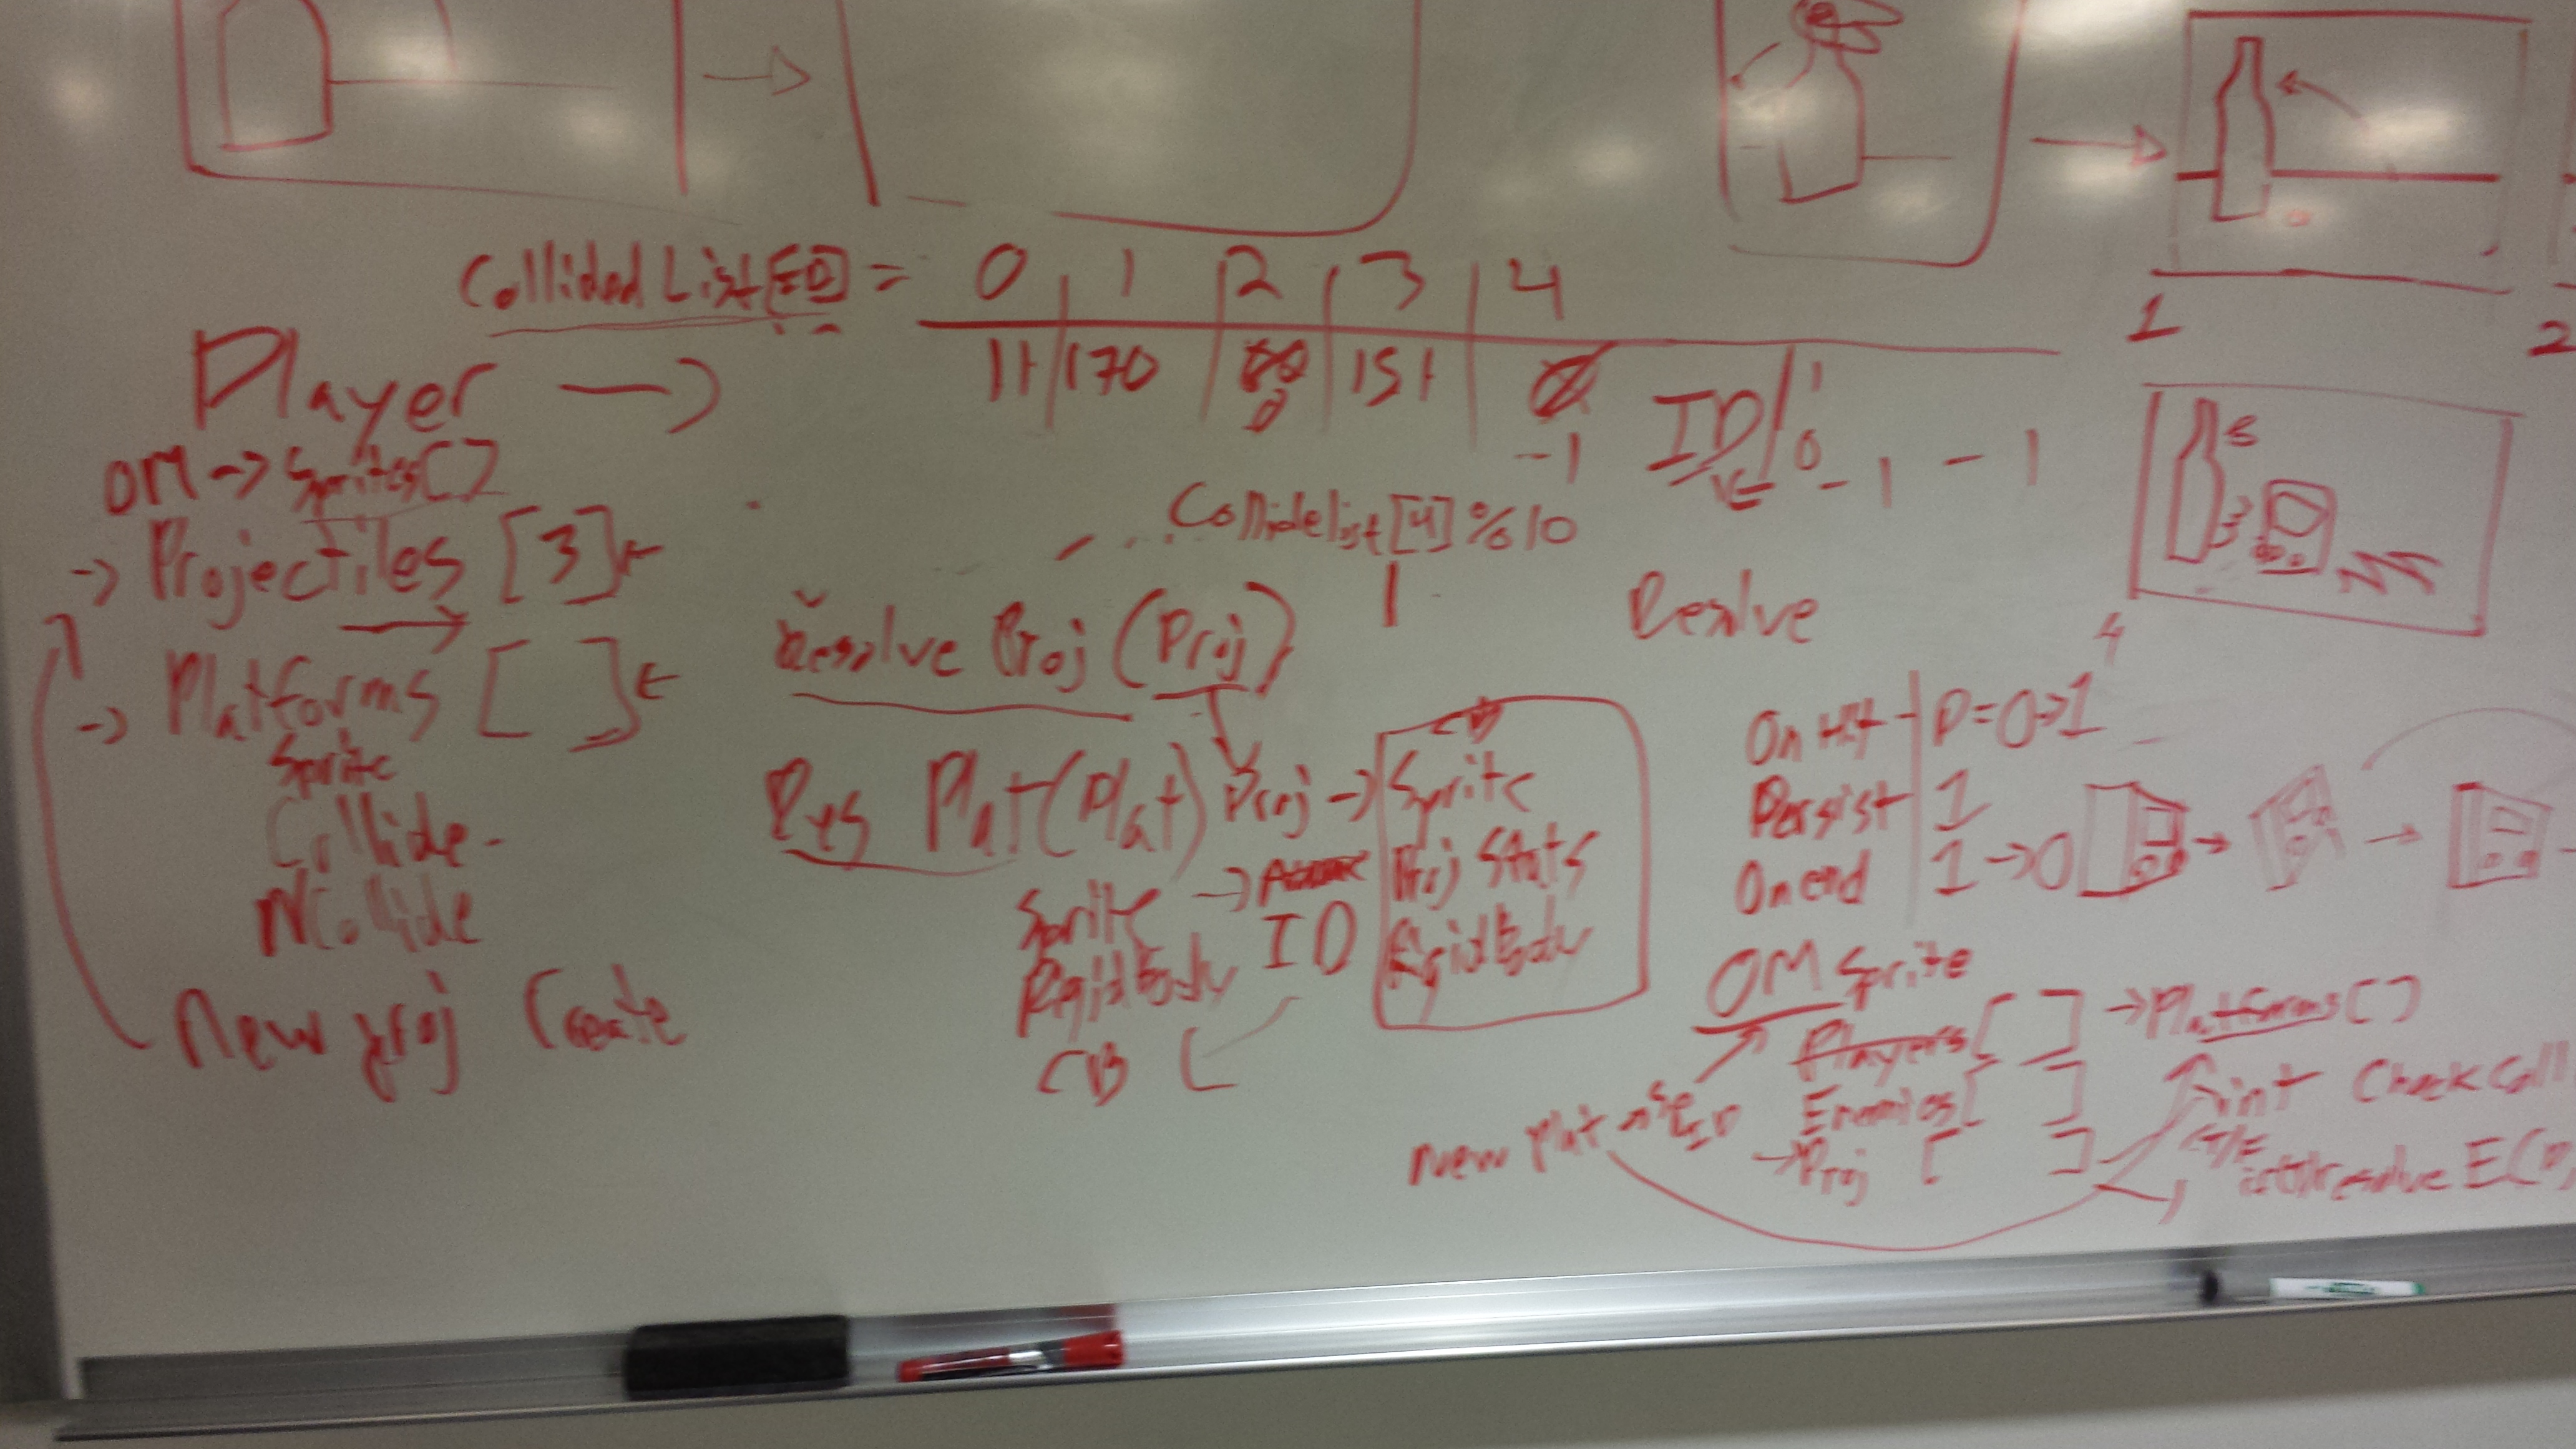 Collided List[ID] = 0 1 2 3 4
Player → 11 170 0 151 -1
ID 1 0 -1 -1
OM → Sprites[]
→ Projectiles [3] ←
→ Platforms [ ] ←
Sprite
Collide
NCollide
New proj Create
Collidelist[4] % 10
1
Resolve Proj (Proj)
Res Plat (Plat)
Proj → Sprite
Proj Stats
RigidBody
CB
Sprite → ID
RigidBody
CB
Resolve
On Hit P = 0 → 1
Persist 1
On end 1 → 0
OM Sprite
Players [ ] → Platforms []
Enemies [ ]
→ Proj [ ]
New plat
int Check Coll
resolve E(
1
2
4